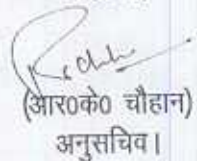 (आर०के० चौहान)
अनुसचिव।